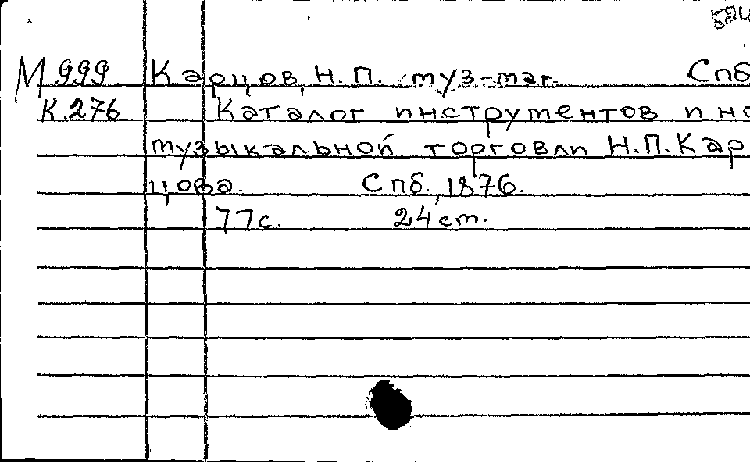 М 999 Карцов, Н.П. муз-маг. Спб
К.276 Каталог инструментов и но
музыкальной торговли Н.П.Кар
цова. Спб., 1876.
77с. 24 cm.